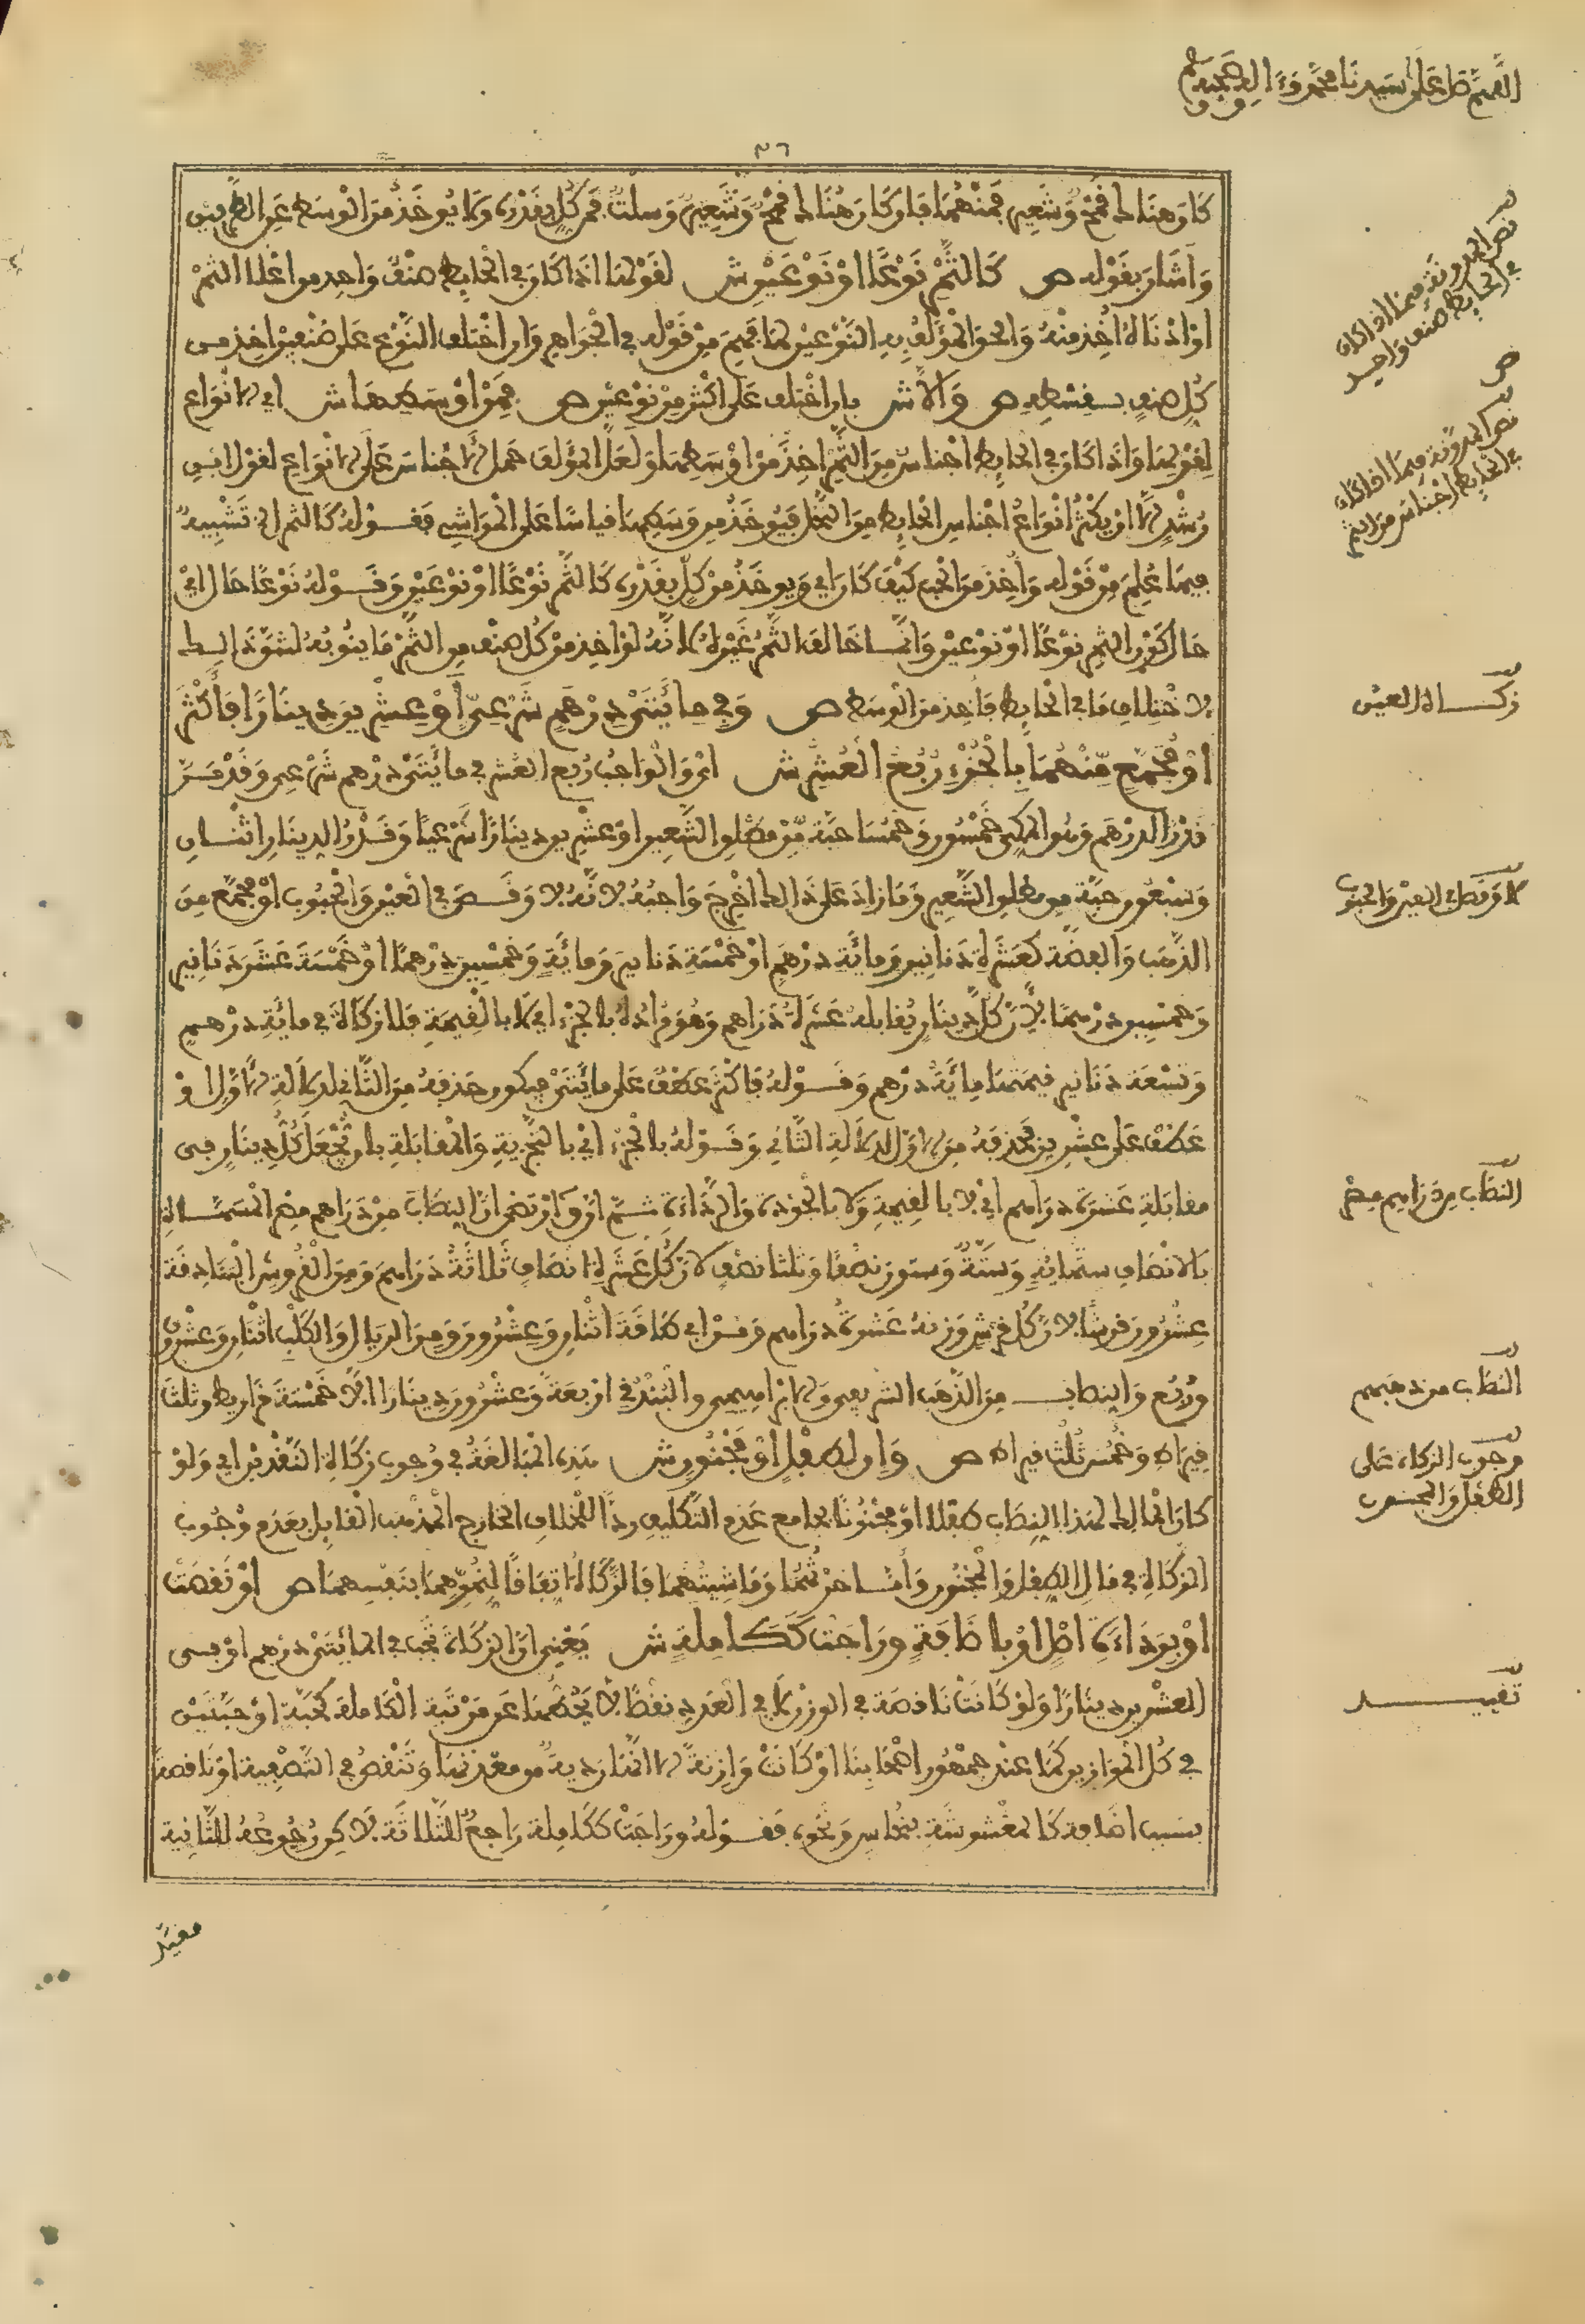 اللهم صل على سيدنا محمد وءاله وصحبه وسلم
٣٦
كان هناك قمح وشعير فمنهما فإن كان هناك قمح وشعير وسلت فمن كل بقدره ولا يوخذ من الوسط عن الطرفين
وأشار بقوله ص كالتمر نوعا أو نوعين ش لقولها إذا كان في الحايط صنف واحد من أعلا التمر
أو أدناه أخذ منه وألحق المؤلف به النوعين لما فهم من قوله في الجواهر وإن اختلف النوع على صنفين أخذ من
كل صنف بقسطه ص وإلا ش بأن اختلف على أكثر من نوعين ص فمن أوسطها ش أي الانواع
لقولها وإذا كان في الحايط أجناس من التمر أخذ من أوسطها ولعل المؤلف حمل الاجناس على الانواع لقول ابن
رشد إلا أن يكثر أنواع أجناس الحايط من النخل فيوخذ من وسطها قياسا على المواشي فقوله كالتمر الخ تشبيه
فيما علم من قوله وأخذ من الحب كيف كان أي ويوخذ من كل بقدره كالتمر نوعا أو نوعين وقوله نوعا حال أي
حال كون التمر نوعا أو نوعين وإنما خالف التمر غيره لانه لو أخذ من كل صنف من التمر ما ينوبه لشق ذالك
لاختلاف ما في الحايط فأخذ من الوسط ص وفي مايتي درهم شرعي أو عشرين دينارا فأكثر
أو مجمع منهما بالجزء ربع العشر ش أي والواجب ربع العشر في مائتي درهم شرعي وقد مر
قدر الدرهم وهو المكي خمسون وخمسا حبة من مطلق الشعير أو عشرين دينارا شرعيا وقدر الدينار اثنان
وسبعون حبة من مطلق الشعير وما زاد على ذالك أخرج واجبه لانه لا وقص في العين والحبوب أو مجمع من
الذهب والفضة كعشرة دنانير ومائة درهم أو خمسة دنانير ومائة وخمسين درهما أو خمسة عشر دنانير
وخمسين درهما لأن كل دينار يقابله عشرة دراهم وهو مراده بالجزء أي لا بالقيمة فلا زكاة في مائة درهم
وتسعة دنانير قيمتها مائة درهم وقوله فأكثر عطف على مائتي فيكون حذفه من الثاني لدلالة الاول أو
عطف على عشرين فحذفه من الاول لدلالة الثاني وقوله بالجزء أي بالتجزية والمقابلة بأن تجعل كل دينار في
مقابلة عشرة دراهم أي لا بالقيمة ولا بالجودة والرداءة ثم ان وارتضى ان النصاب من دراهم مصر المسماة
بالانصاف ستمائة وستة وستون نصفا وثلثا نصف لان كل عشرة انصاف ثلاثة دراهم ومن القروش البنادقة
عشرون قرشا لان كل قرش وزنه عشرة دراهم ومن أبي طاقة اثنان وعشرون ومن الريال والكلب اثنان وعشرون
وربع والنصاب من الذهب الشريفي والابراهيمي والبندقي أربعة وعشرون دينارا إلا خمسة قراريط وثلثا
قيراط وخمس ثلث قيراط ص وإن لطفل أو مجنون ش هذه المبالغة في وجوب زكاة النقدين أي ولو
كان المالك لهذا النصاب طفلا أو مجنونا لجامع عدم التكليف ردا للخلاف الخارج المذهب القايل بعدم وجوب
الزكاة في مال الطفل والمجنون وأما حرثهما وماشيتهما فالزكاة اتفاقا لنموهما بنفسهما ص أو نقصت
أو برداءة أصل أو بإضافة وراجت ككاملة ش يعني ان الزكاة تجب في المائتي درهم أو في
العشرين دينارا ولو كانت ناقصة في الوزن لا في العدد نقصا لا يحطها عن مرتبة الكاملة كحبة أو حبتين
في كل الموازين كما عند جمهور أصحابنا أو كانت وازنة إلا أنها ردية من معدنها وتنقص في التصفية أو ناقصة
بسبب إضافة كالمغشوشة بنحاس ونحوه فقوله وراجت ككاملة راجع للثلاثة لاكن رجوعه للثانية
مقيد
نص المدونة فيما إذا كان
في الحايط صنف واحد
نص المدونة فيما إذا كان
في الحايط أجناس من التمر
زكاة العين
لا وقص في العين والحبوب
النصاب من دراهم مصر
النصاب من ذهبهم
وجوب الزكاة على
الطفل والمجنون
تقييد